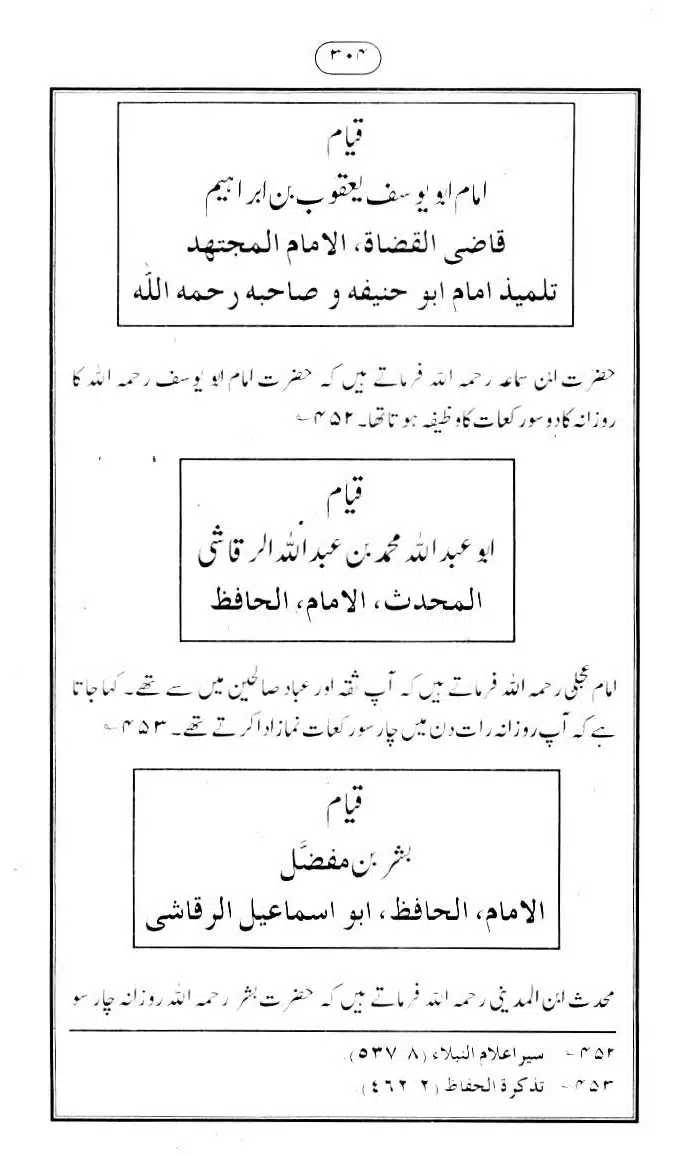 ۳۰۴
قیام
امام ابو یوسف یعقوب بن ابراہیم
قاضی القضاۃ، الامام المجتھد
تلمیذ امام ابو حنیفہ و صاحبہ رحمہ اللہ
حضرت ابن سماعہ رحمہ اللہ فرماتے ہیں کہ حضرت امام ابو یوسف رحمہ اللہ کا
روزانہ کا دو سو رکعات کا وظیفہ ہوتا تھا۔ ۴۵۲؎
قیام
ابو عبد اللہ محمد بن عبد اللہ الرقاشی
المحدث، الامام، الحافظ
امام عجلی رحمہ اللہ فرماتے ہیں کہ آپ ثقہ اور عباد صالحین میں سے تھے۔ کہا جاتا
ہے کہ آپ روزانہ رات دن میں چار سو رکعات نماز ادا کرتے تھے۔ ۴۵۳؎
قیام
بشر بن مفضَّل
الامام، الحافظ، ابو اسماعیل الرقاشی
محدث ابن المدینی رحمہ اللہ فرماتے ہیں کہ حضرت بشر رحمہ اللہ روزانہ چار سو
۴۵۲؎ سیر اعلام النبلاء (۸ ۵۳۷).
۴۵۳؎ تذکرۃ الحفاظ (۲ ٤٦٢).